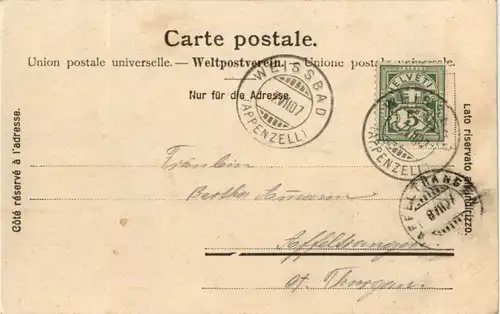 Carte postale.
Union postale universelle. — Weltpostverein. — Unione postale universale.
Nur für die Adresse
WEISSBAD
VII 07
(APPENZELL)
HELVETIA
5
WEISSBAD
(APPENZELL)
Côté réservé à l'adresse.
Lato riservato all'indirizzo.
Fräulein
Bertha
Affeltrangen
Ct. Thurgau.